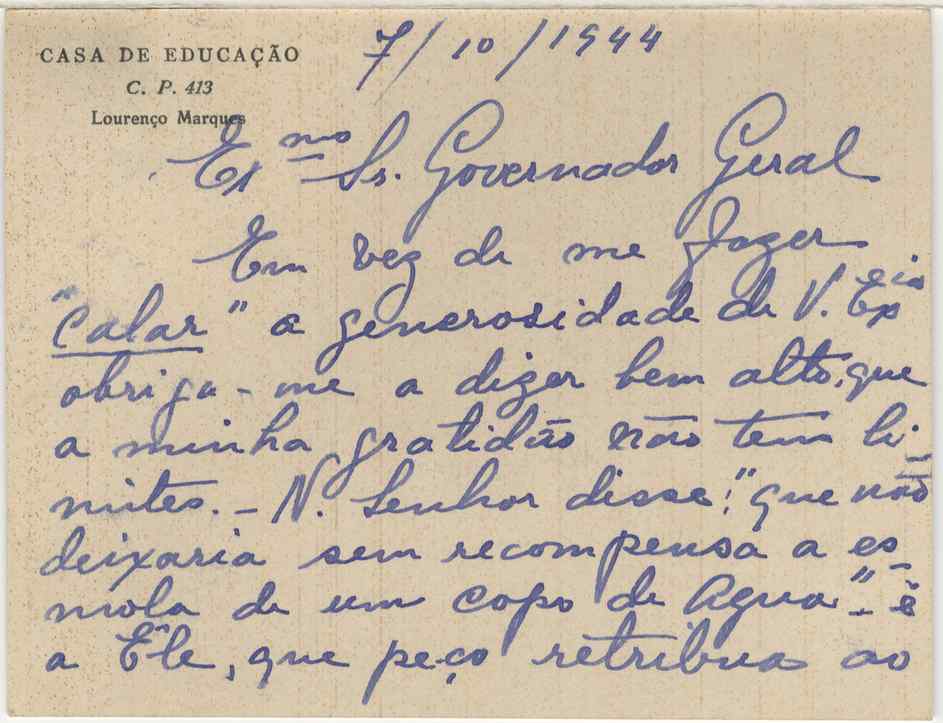 CASA DE EDUCAÇÃO
C. P. 413
Lourenço Marques
7/10/1944
Exmo Sr. Governador Geral
Em vez de me fazer
"calar" a generosidade de V. Excia
obriga-me a dizer bem alto, que
a minha gratidão não tem li-
mites. - N. Senhor disse: "que não
deixaria sem recompensa a es-
mola de um copo de Agua" - é
a Ele, que peço retribua ao